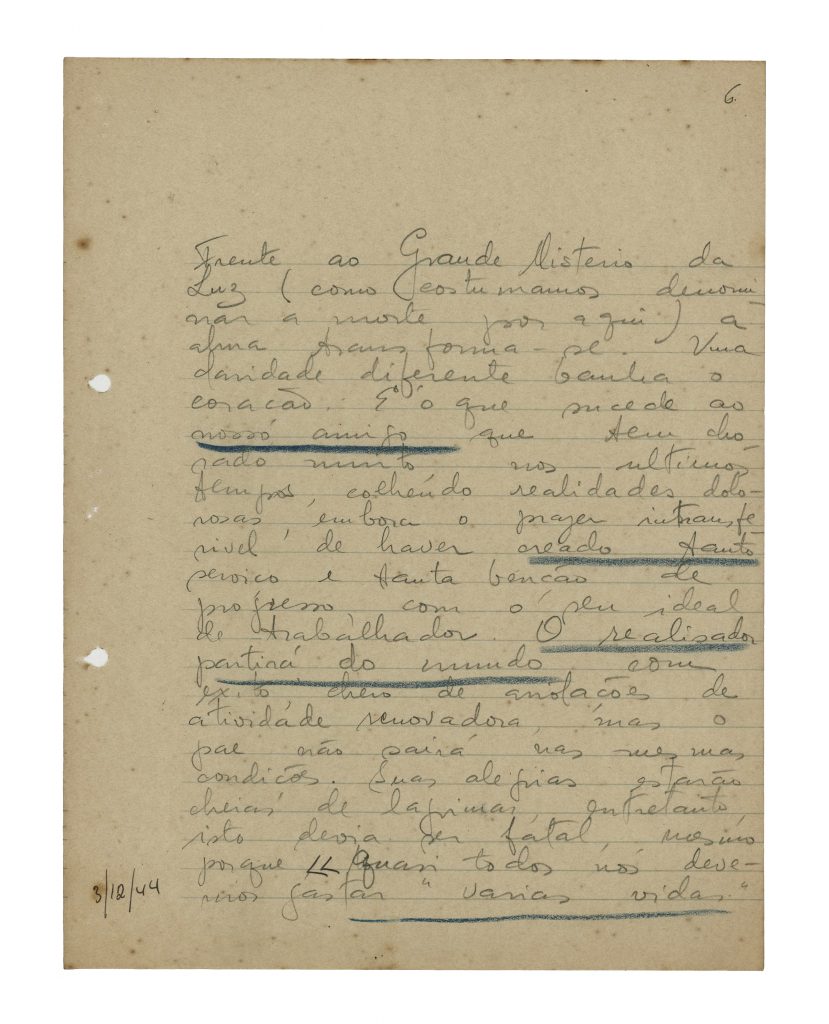 6
Frente ao Grande Misterio da
Luz (como costumamos denomi-
nar a morte por aqui) a
alma transforma-se. Uma
claridade diferente banha o
coracão. E' o que sucede ao
nosso amigo que tem cho
rado muito nos ultimos
tempos, colhendo realidades dolo-
rosas, embora o prazer intransfe
rivel de haver creado tanto
serviço e tanta bencão de
progresso com o seu ideal
de trabalhador. O realisador
partirá do mundo com
exito, cheio de anotações de
atividade renovadora, mas o
pae não sairá nas mesmas
condicões. Suas alegrias estarão
cheias de lagrimas, entretanto,
isto devia ser fatal, mesmo
porque quasi todos nós deve-
mos gastar "varias vidas"
3/12/44